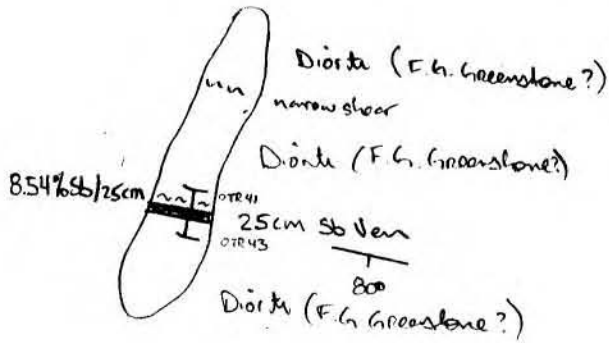 Diorite (F.G. Greenstone?)
narrow shear
Diorite (F.G. Greenstone?)
8.54%Sb/25cm
OTR41
25cm Sb Vein
OTR43
800
Diorite (F.G. Greenstone?)